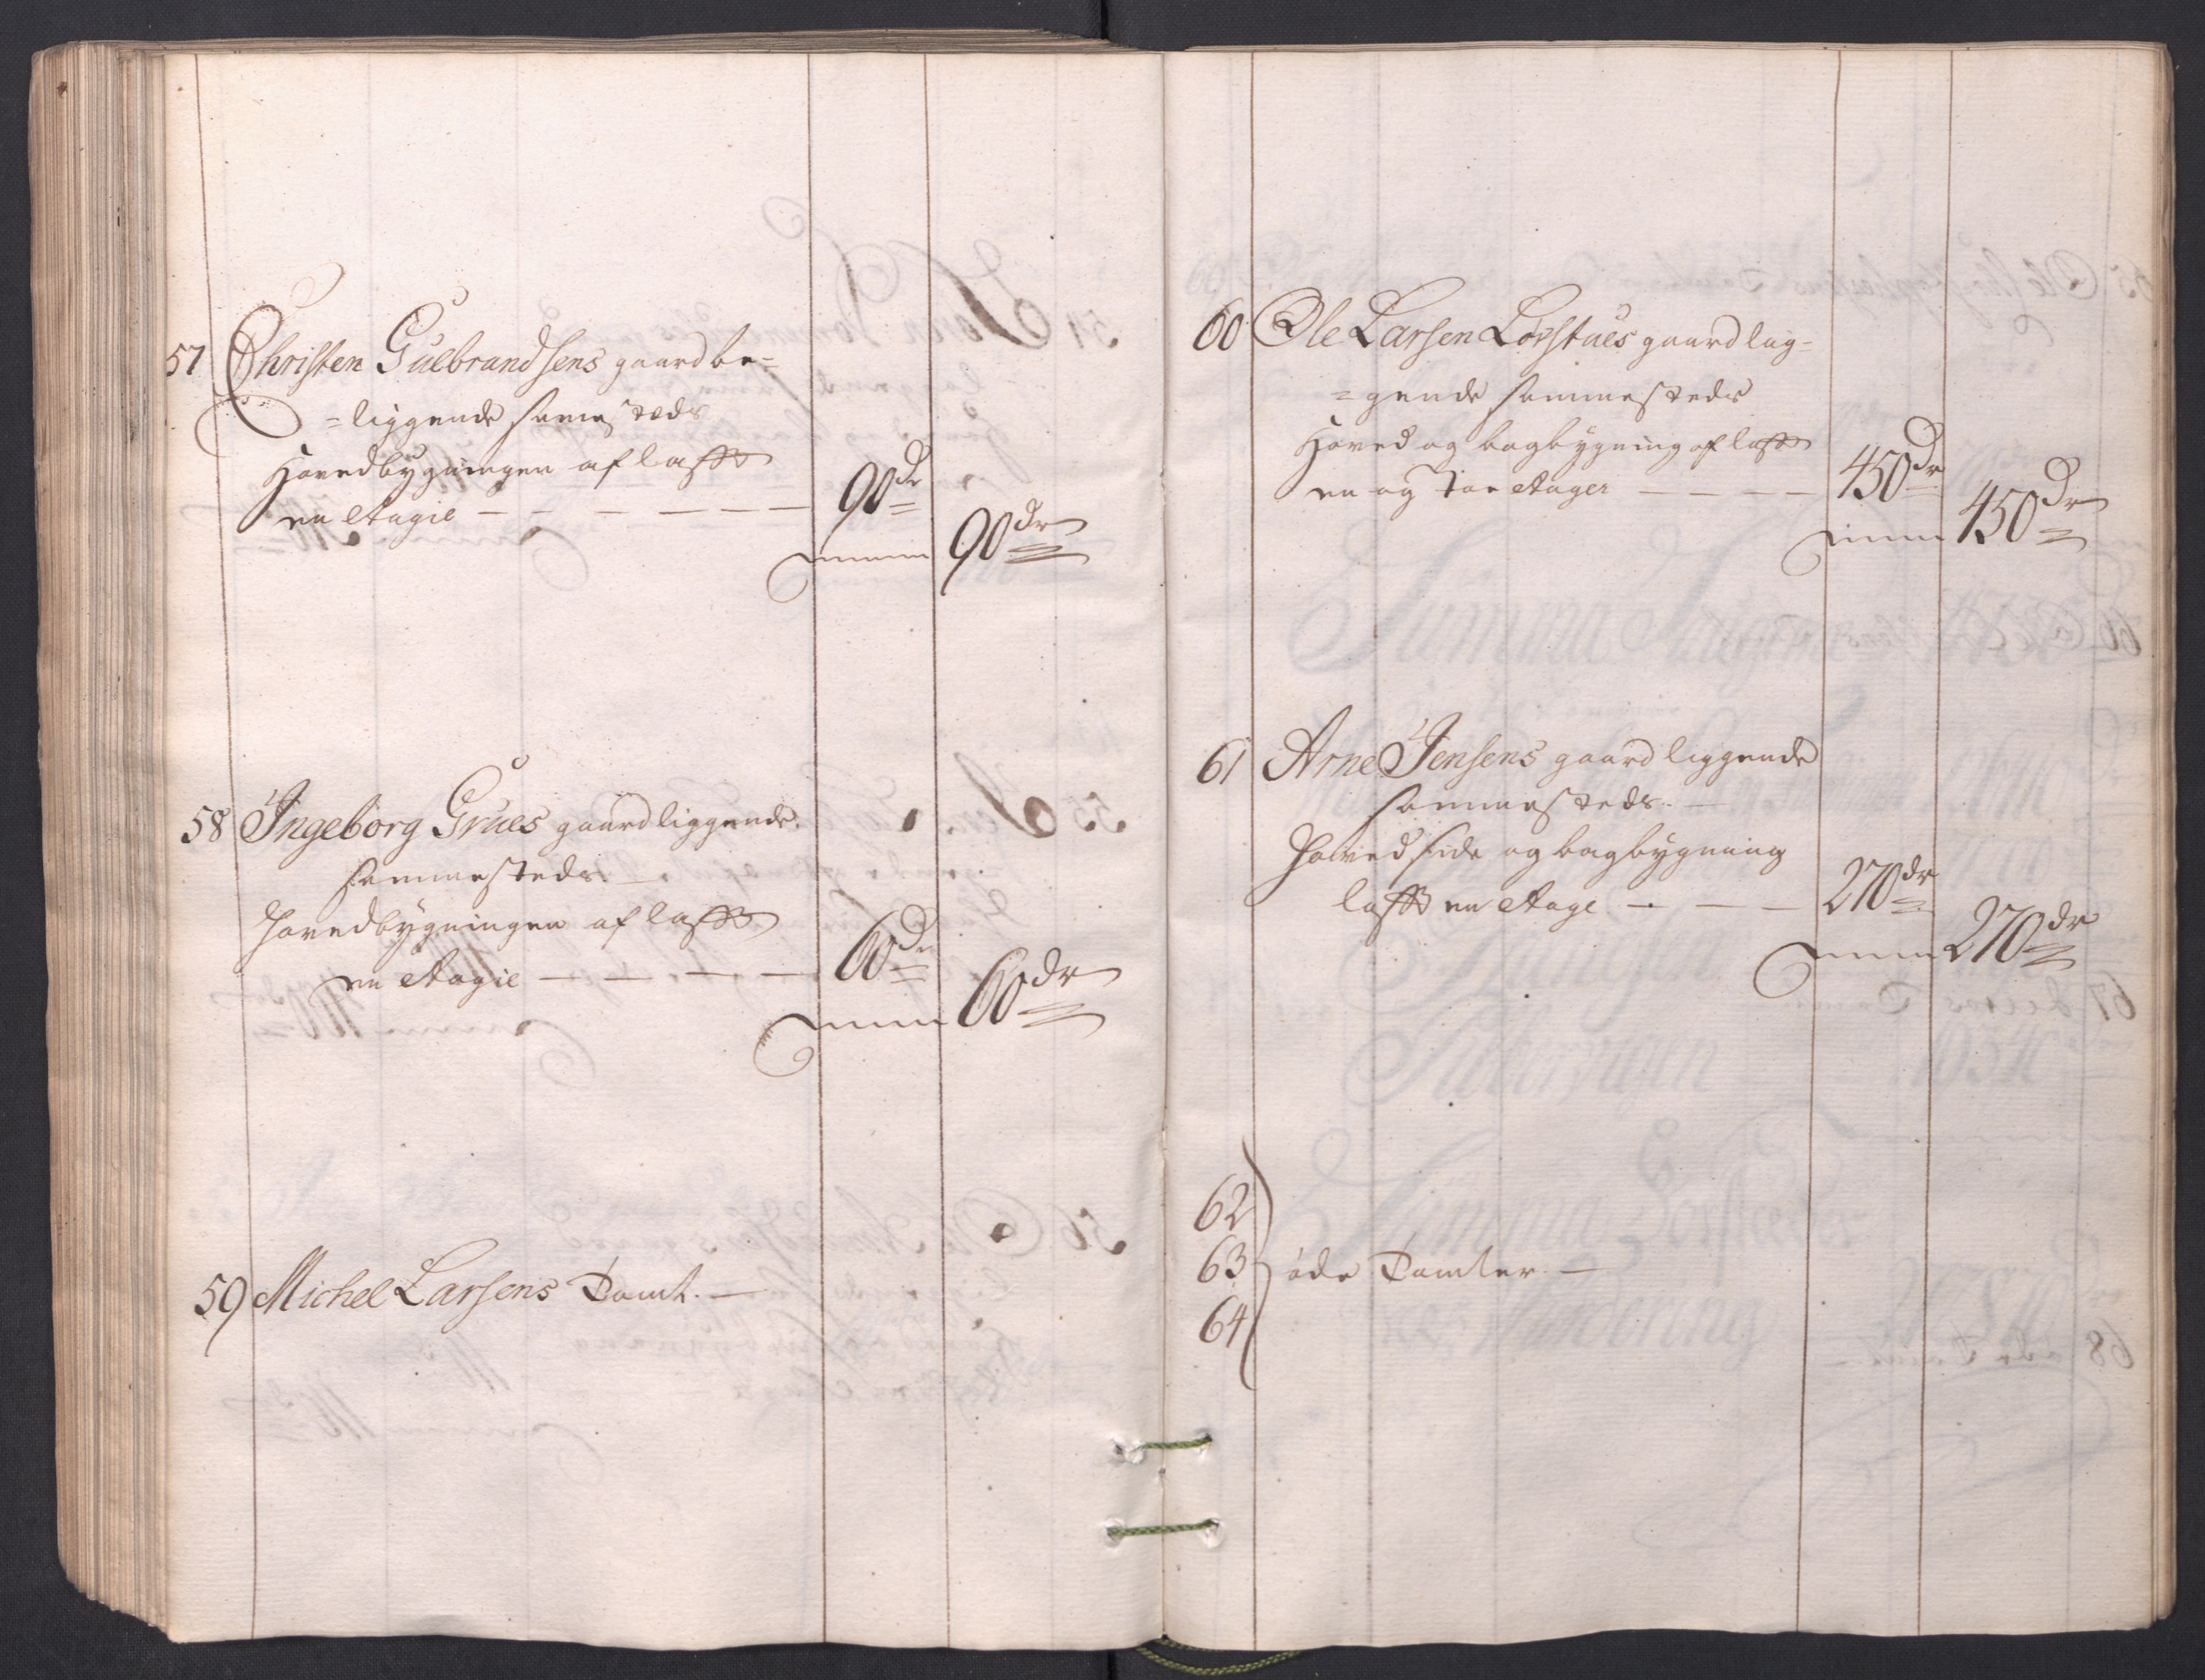 57 Christen Gulbrandsens gaard be=
=liggende samesteds
Hovedbygningen af lafft
en Etagie — — — — — — 90 dr
Summa 90 dr
58 Ingeborg Grues gaard liggende
sammesteds —
Hovedbygningen af lafft
en Etagie — — — — 60 dr
Summa 60 dr
59 Michel Larsens Tomt. —
60 Ole Larsen gaard lig=
=gende sammesteds
Hoved og bagbygning af lafft
en og toe Etager — — — — 450 dr
Summa 450 dr
61 Arne Jensens gaard liggende
sammesteds. —
Hovedside og bagbygning
lafft en Etage — — — 270 dr
Summa 270 dr
62
63 øde Tomter —
64